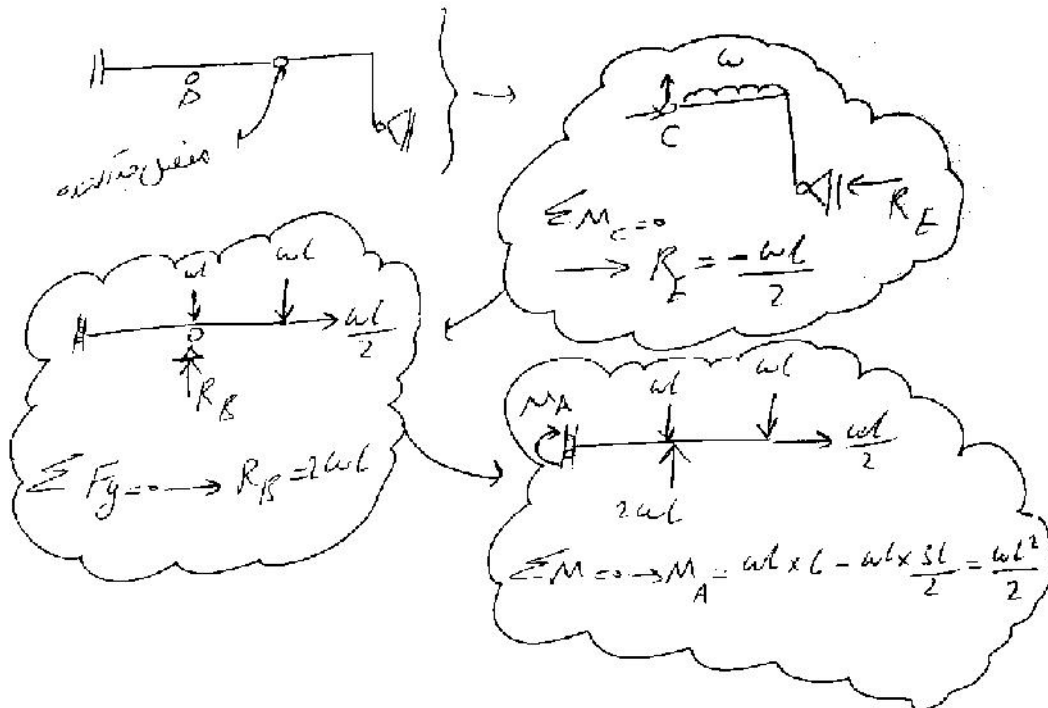 مفصل جداکننده
ω
C
R_E
ΣM_C=0
→ R_E = -ωl/2
ωl ωl
ωl/2
R_B
ΣFy=0 → R_B=2ωl
M_A ωl ωl
ωl/2
2ωl
ΣM=0 → M_A = ωl×l - ωl×3l/2 = ωl²/2